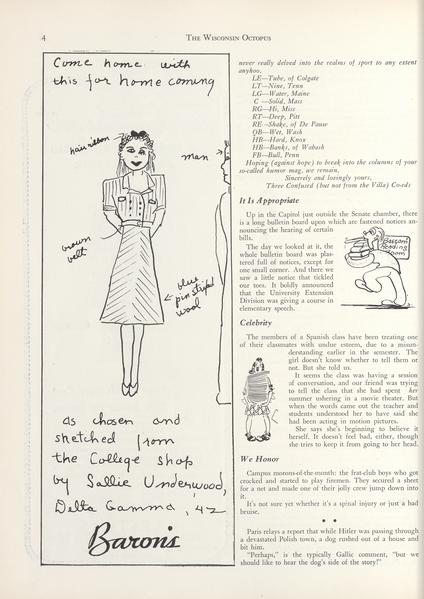 4
THE WISCONSIN OCTOPUS
Come home with
this for home coming
hair ribbon
man
brown
belt
blue
pin striped
wool
as chosen and
sketched from
the College Shop
by Sallie Underwood,
Delta Gamma, '42
Baron's
never really delved into the realms of sport to any extent
anyhoo.
LE—Tube, of Colgate
LT—Nine, Tenn
LG—Water, Maine
C—Solid, Mass
RG—Hi, Miss
RT—Deep, Pitt
RE—Shake, of De Pauw
QB—Wet, Wash
HB—Hard, Knox
HB—Banks, of Wabash
FB—Bull, Penn
Hoping (against hope) to break into the columns of your
so-called humor mag. we remain,
Sincerely and lovingly yours,
Three Confused (but not from the Villa) Co-eds
It Is Appropriate
Up in the Capitol just outside the Senate chamber, there
is a long bulletin board upon which are fastened notices an-
nouncing the hearing of certain
bills.
The day we looked at it, the
whole bulletin board was plas-
tered full of notices, except for
one small corner. And there we
saw a little notice that tickled
our toes. It boldly announced
that the University Extension
Division was giving a course in
elementary speech.
Bascom
Reading
Room
Celebrity
The members of a Spanish class have been treating one
of their classmates with undue esteem, due to a misun-
derstanding earlier in the semester. The
girl doesn't know whether to tell them or
not. But she told us.
It seems the class was having a session
of conversation, and our friend was trying
to tell the class that she had spent her
summer ushering in a movie theater. But
when the words came out the teacher and
students understood her to have said she
had been acting in motion pictures.
She says she's beginning to believe it
herself. It doesn't feel bad, either, though
she tries to keep it from going to her head.
We Honor
Campus morons-of-the-month: the frat-club boys who got
crocked and started to play firemen. They secured a sheet
for a net and made one of their jolly crew jump down into
it.
It's not sure yet whether it's a spinal injury or just a bad
bruise.
• •
Paris relays a report that while Hitler was passing through
a devastated Polish town, a dog rushed out of a house and
bit him.
"Perhaps," is the typically Gallic comment, "but we
should like to hear the dog's side of the story!"